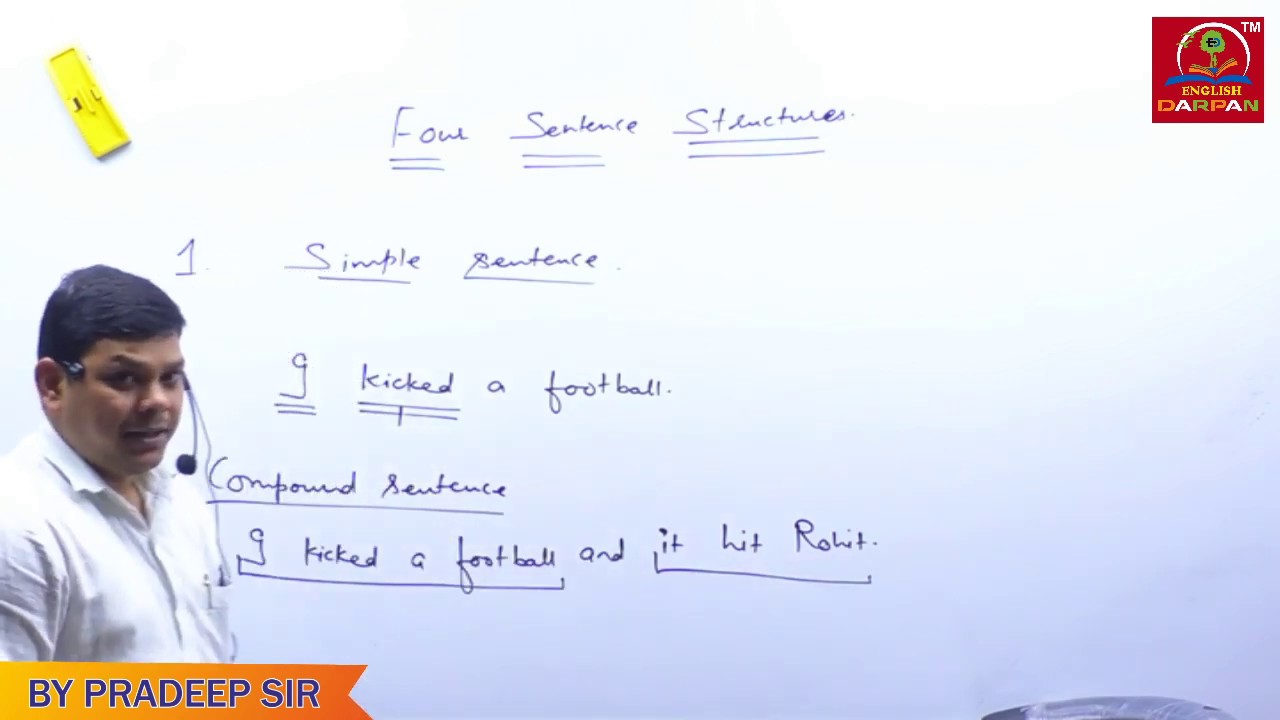 TM
ENGLISH
DARPAN
Four Sentence Structures.
1. Simple sentence.
I kicked a football.
Compound sentence
I kicked a football and it hit Rohit.
BY PRADEEP SIR